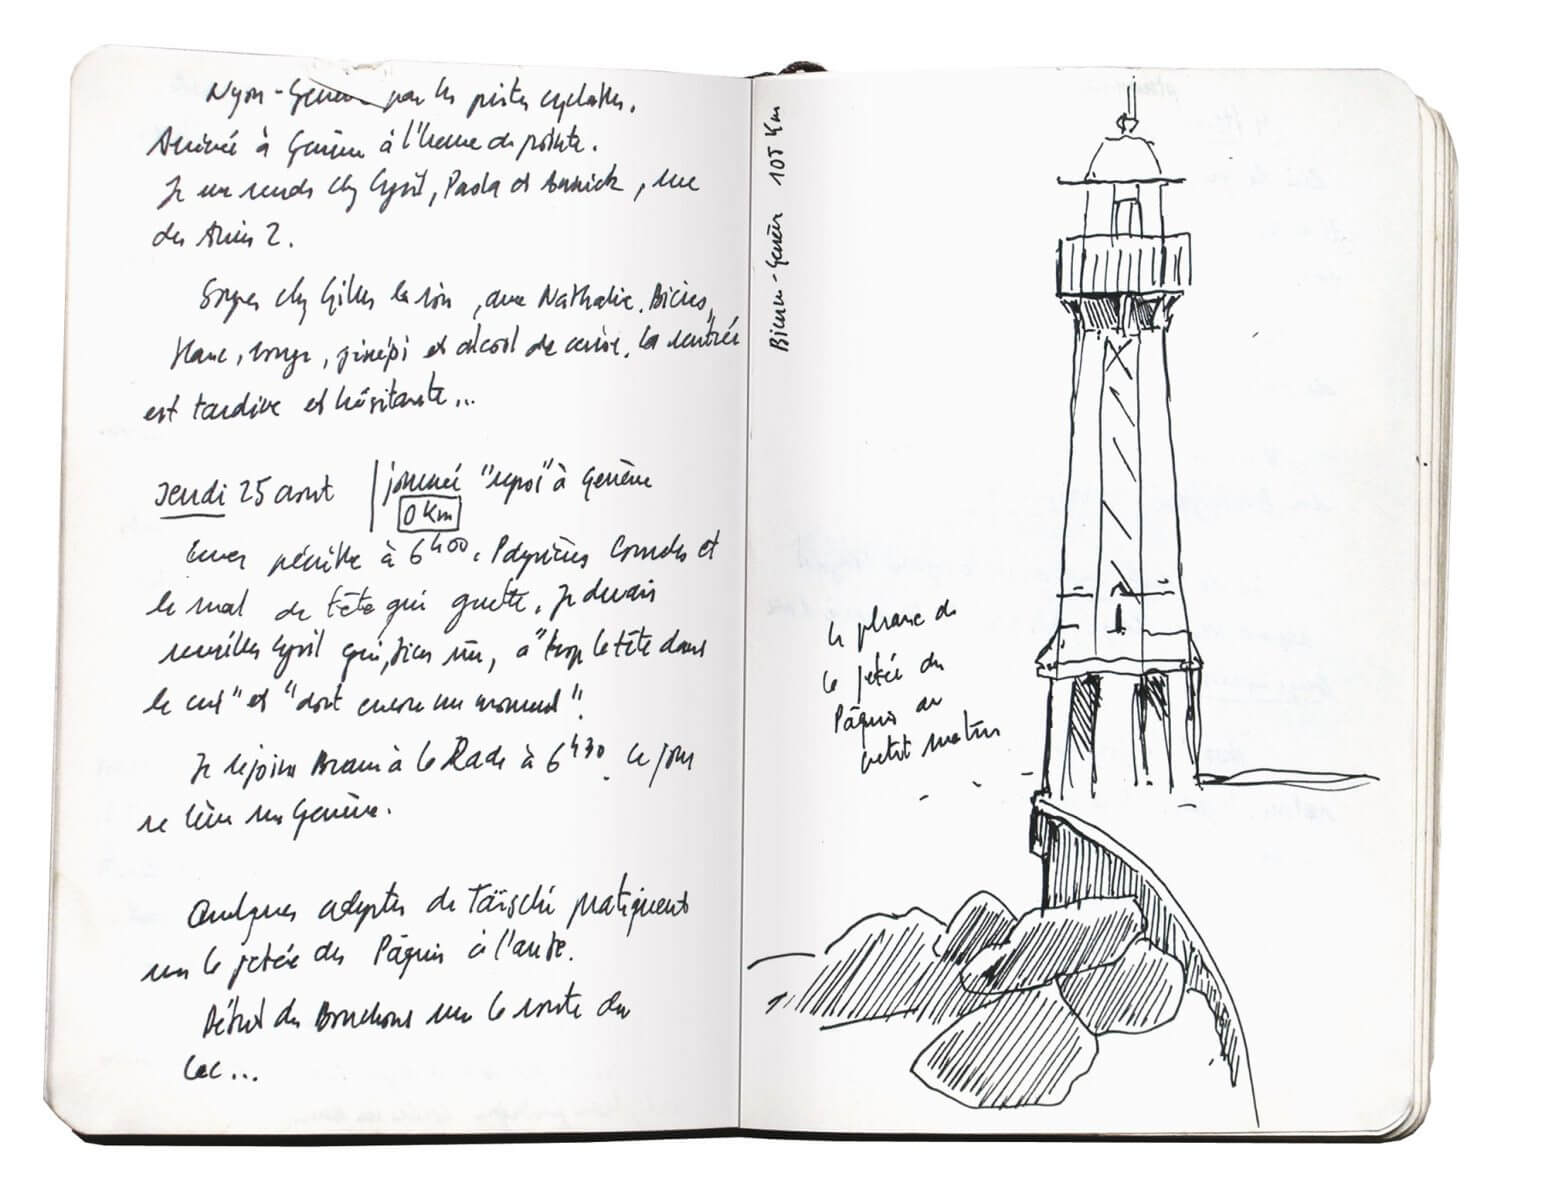 Nyon-Genève par les pistes cyclables.
Arrivée à Genève à l'heure de pointe.
Je me rends chez Cyril, Paola et Annick, rue
des Amis 2.
Souper chez Gilles le soir, avec Nathalie. Bières,
blanc, rouge, génépi et alcool de cerise. La rentrée
est tardive et hésitante...
Jeudi 25 août | journée "repos" à Genève
0 Km
Lever pénible à 6h00. Paupières lourdes et
le mal de tête qui guette. Je devais
réveiller Cyril qui, bien sûr, a "trop la tête dans
le cul" et "dort encore un moment".
Je rejoins à la Rade à 6h30. Le jour
se lève sur Genève.
Quelques adeptes de Taïschi pratiquent
sur la jetée des Pâquis à l'aube.
Début des Bouchons sur la route du
Lac...
Bienne-Genève 105 Km
Le phare de
la jetée des
Pâquis au
petit matin